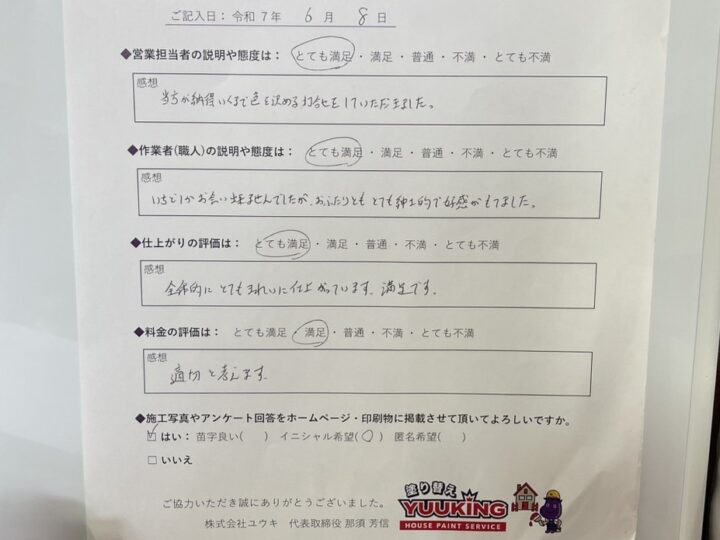 ご記入日：令和7年 6月 8日
◆営業担当者の説明や態度は： とても満足・満足・普通・不満・とても不満
感想
当方が納得いくまで色を決める打合せをしていただきました。
◆作業者(職人)の説明や態度は： とても満足・満足・普通・不満・とても不満
感想
いちどしかお会い出来ませんでしたが、おふたりとも とても紳士的で好感がもてました。
◆仕上がりの評価は： とても満足・満足・普通・不満・とても不満
感想
全体的に とてもきれいに仕上がっています。満足です。
◆料金の評価は： とても満足・満足・普通・不満・とても不満
感想
適切と考えます。
◆施工写真やアンケート回答をホームページ・印刷物に掲載させて頂いてよろしいですか。
☑ はい： 苗字良い( ) イニシャル希望(○) 匿名希望( )
□ いいえ
ご協力いただき誠にありがとうございました。
株式会社ユウキ 代表取締役 那須 芳信
塗り替え
YUUKING
HOUSE PAINT SERVICE